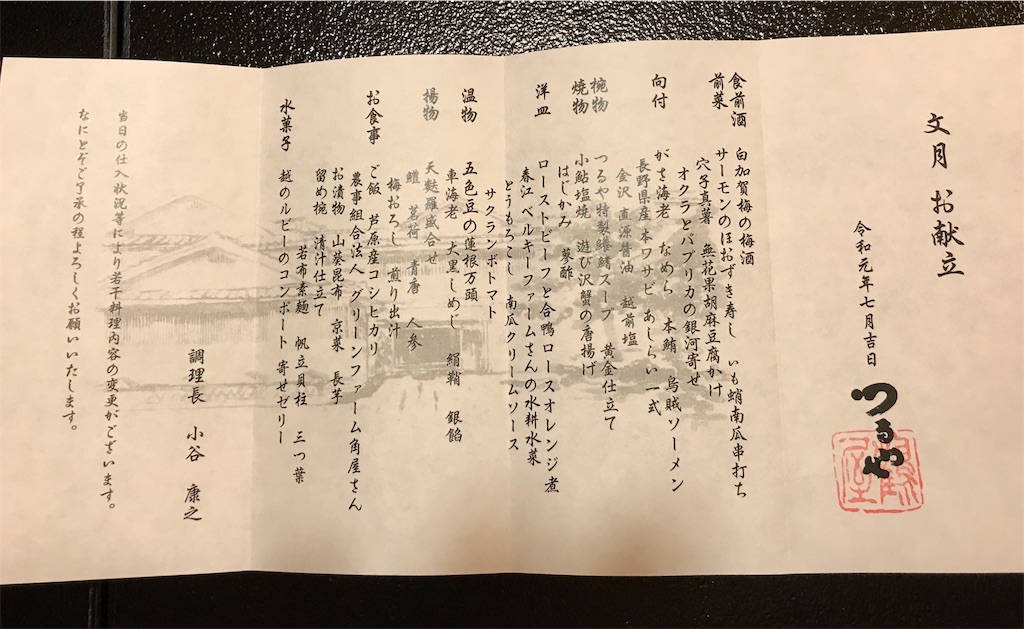 文月 お献立
令和元年七月吉日
つるや
食前酒 白加賀梅の梅酒
前菜 サーモンのほおずき寿し いも蛸南瓜串打ち
穴子真薯 無花果胡麻豆腐かけ
オクラとパプリカの銀河寄せ
向付 がさ海老 なめら 本鮪 烏賊ソーメン
長野県産本ワサビ あしらい一式
金沢 直源醤油 越前塩
椀物 つるや特製鱶鰭スープ 黄金仕立て
焼物 小鮎塩焼 遊び沢蟹の唐揚げ
はじかみ 蓼酢
洋皿 ローストビーフと合鴨ロースオレンジ煮
春江ベルキーファームさんの水耕水菜
とうもろこし 南瓜クリームソース
サクランボトマト
温物 五色豆の蓮根万頭
車海老 大黒しめじ 絹鞘 銀餡
揚物 天麩羅盛合せ
鱧 茗荷 青唐 人参
梅おろし 煎り出汁
お食事 ご飯 芦原産コシヒカリ
農事組合法人 グリーンファーム角屋さん
お漬物 山葵昆布 京菜 長芋
留め椀 清汁仕立て
若布素麺 帆立貝柱 三つ葉
水菓子 越のルビーのコンポート 寄せゼリー
調理長 小谷 康之
当日の仕入状況等により若干料理内容の変更がございます。
なにとぞご了承の程よろしくお願いいたします。